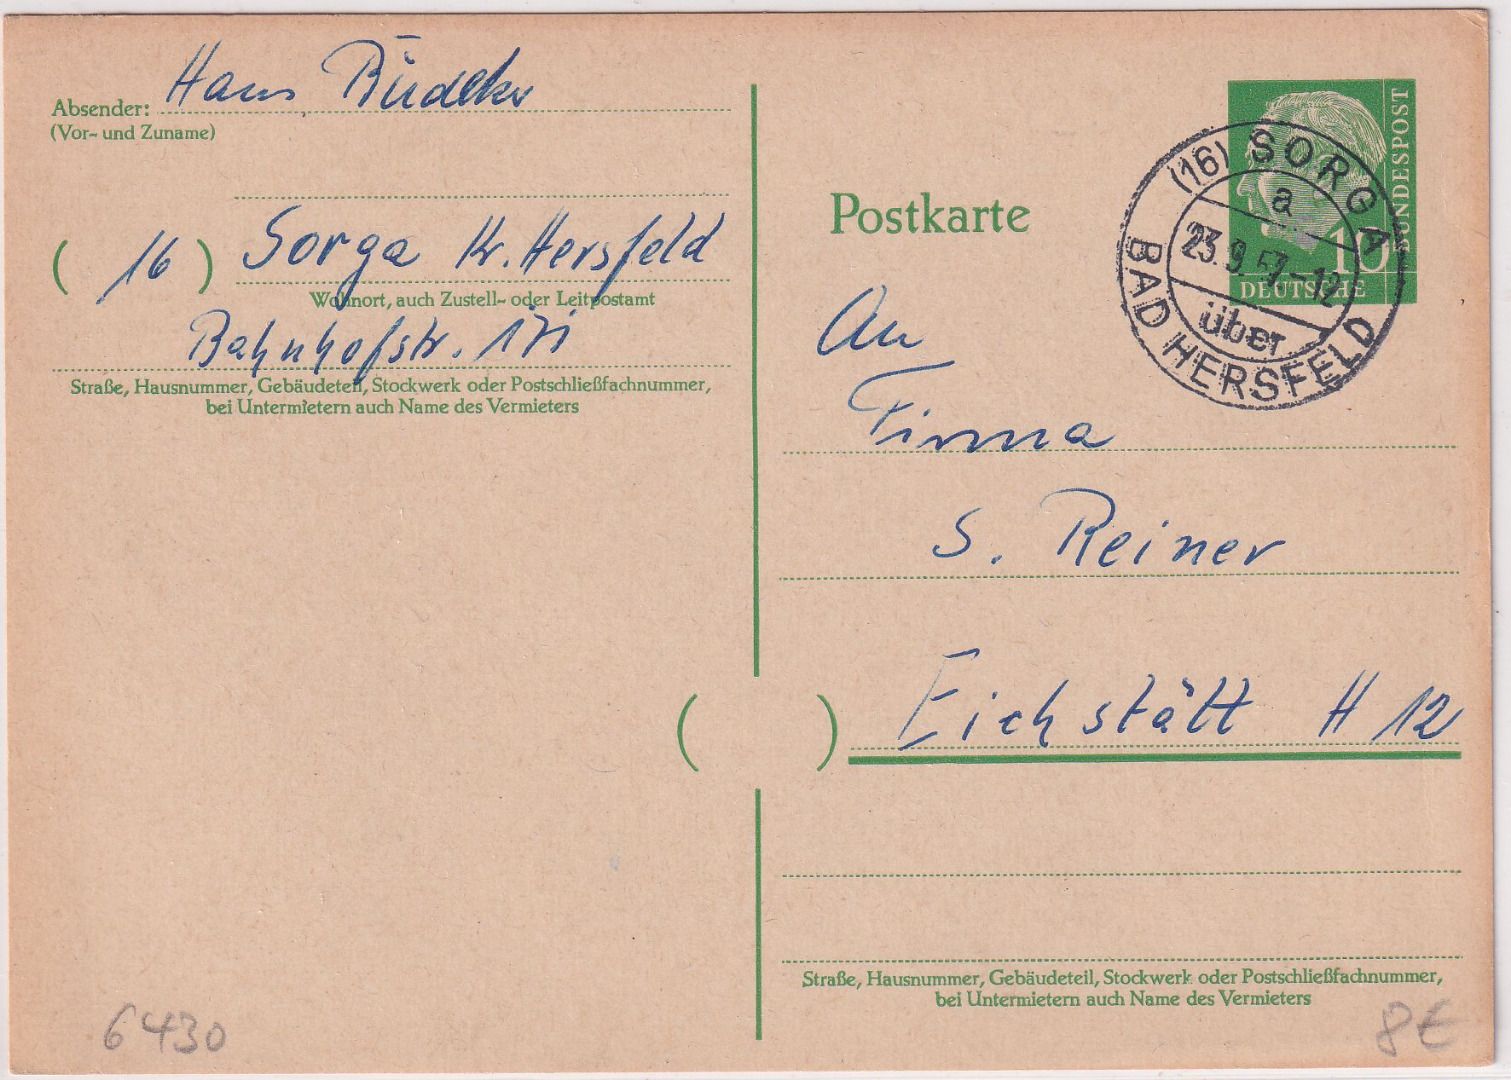 Absender: Hans Büdeker
(Vor- und Zuname)
( 16 ) Sorga Kr. Hersfeld
Wohnort, auch Zustell- oder Leitpostamt
Bahnhofstr.
Straße, Hausnummer, Gebäudeteil, Stockwerk oder Postschließfachnummer,
bei Untermietern auch Name des Vermieters
6430
Postkarte
BUNDESPOST
10
DEUTSCHE
(16) SORGA
a
23.9.57-12
über
BAD HERSFELD
An
Firma
S. Reiner
( ) Eichstätt H 12
Straße, Hausnummer, Gebäudeteil, Stockwerk oder Postschließfachnummer,
bei Untermietern auch Name des Vermieters
8€